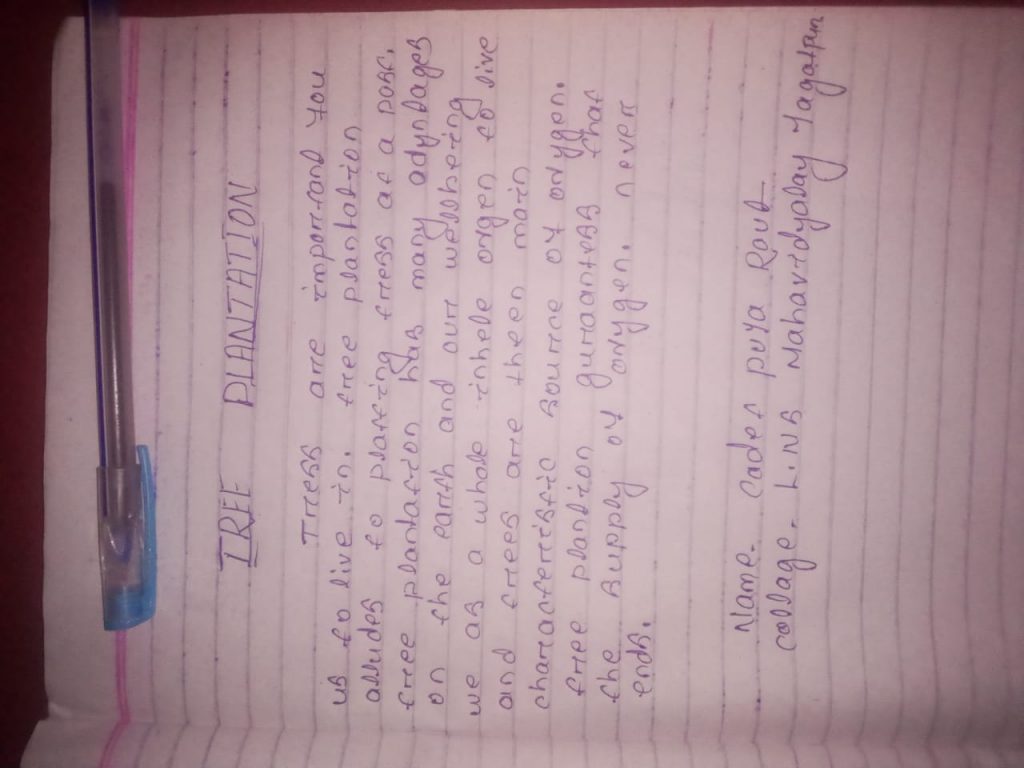 TREE PLANTATION
Trees are importand you
us to live in. tree plantation
alludes to plaṭing trees at a pose.
tree plantation has many adyntages
on the earth and our wellbheing
we as a whole inhele oxgen to live
and trees are then main
charracterristic sourre of oxygen.
tree plantion guraantess that
the supply of oxygen. never
ends.
Name- Cadet puya Rout
collage- L.N.B Mahavidyalay Jagatpur